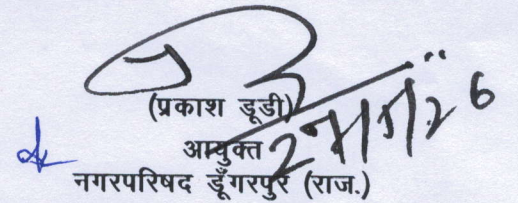 (प्रकाश डूडी)
आयुक्त
नगरपरिषद डूँगरपुर (राज.)